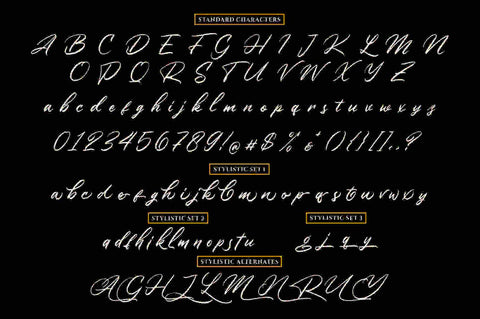 STANDARD CHARACTERS
A B C D E F G H I J K L M N
O P Q R S T U V W X Y Z
a b c d e f g h i j k l m n o p q r s t u v w x y z
0123456789!@#$%&'(){}[]..?
STYLISTIC SET 1
a b c d e f g h i j k l m n o p q r s t u v w x y
STYLISTIC SET 2
a d e f h i k l m n o p s t u
STYLISTIC SET 3
g j q y
STYLISTIC ALTERNATES
A G H J L M N R U Y